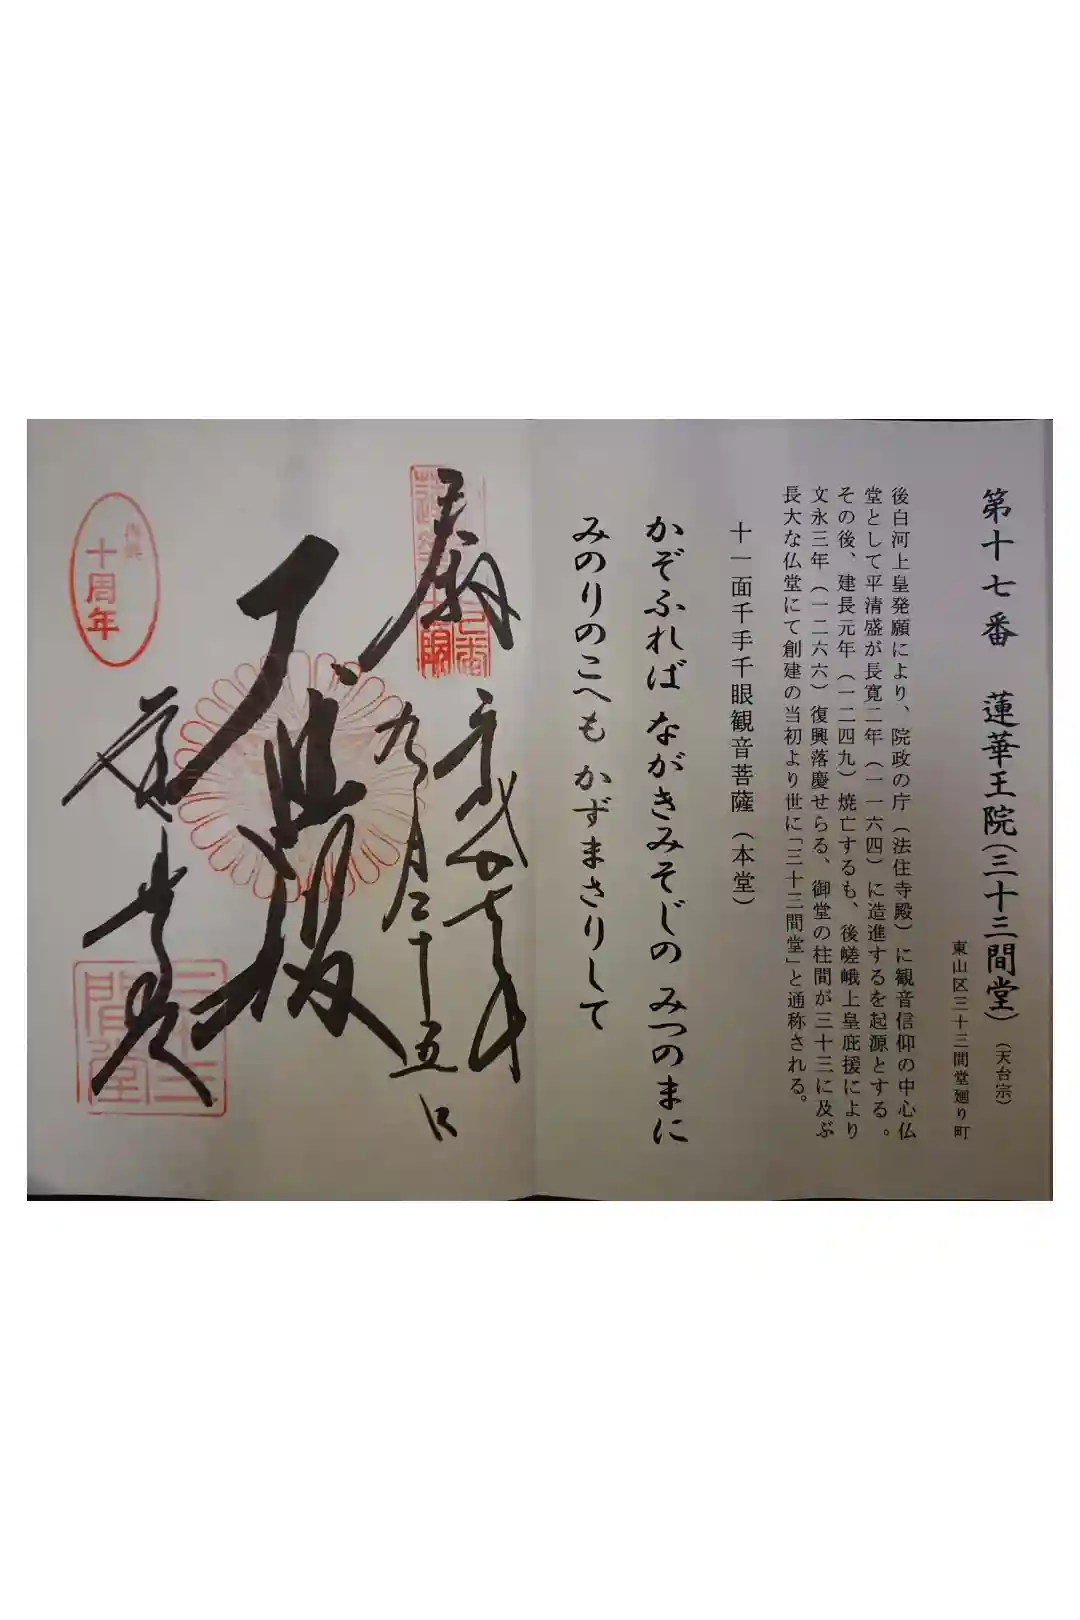 第十七番 蓮華王院(三十三間堂)(天台宗)
東山区三十三間堂廻り町
後白河上皇発願により、院政の庁(法住寺殿)に観音信仰の中心仏
堂として平清盛が長寛二年(一一六四)に造進するを起源とする。
その後、建長元年(一二四九)焼亡するも、後嵯峨上皇庇援により
文永三年(一二六六)復興落慶せらる、御堂の柱間が三十三に及ぶ
長大な仏堂にて創建の当初より世に「三十三間堂」と通称される。
十一面千手千眼観音菩薩(本堂)
かぞふれば ながきみそじの みつのまに
みのりのこへも かずまさりして
奉拝
九月二十五日
大悲殿
十周年
三十三
間堂